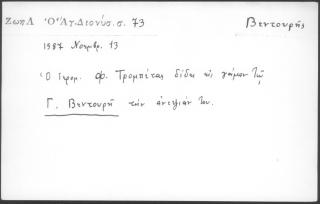 Ζωη Λ Ὁ Ἅγ. Διονύσ. σ. 73 Βεντουρῆς
1587 Νοεμβρ. 13
Ὁ ἱερομ. Φ. Τρομπέτας δίδει εἰς γάμον τῷ
Γ. Βεντουρῆ τὴν ἀνεψιάν του.